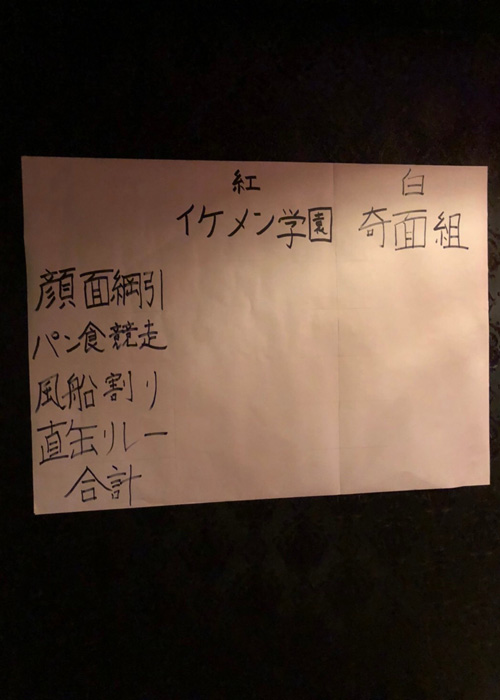 紅 白
イケメン学園 奇面組
顔面綱引
パン食競走
風船割り
直缶リレー
合計